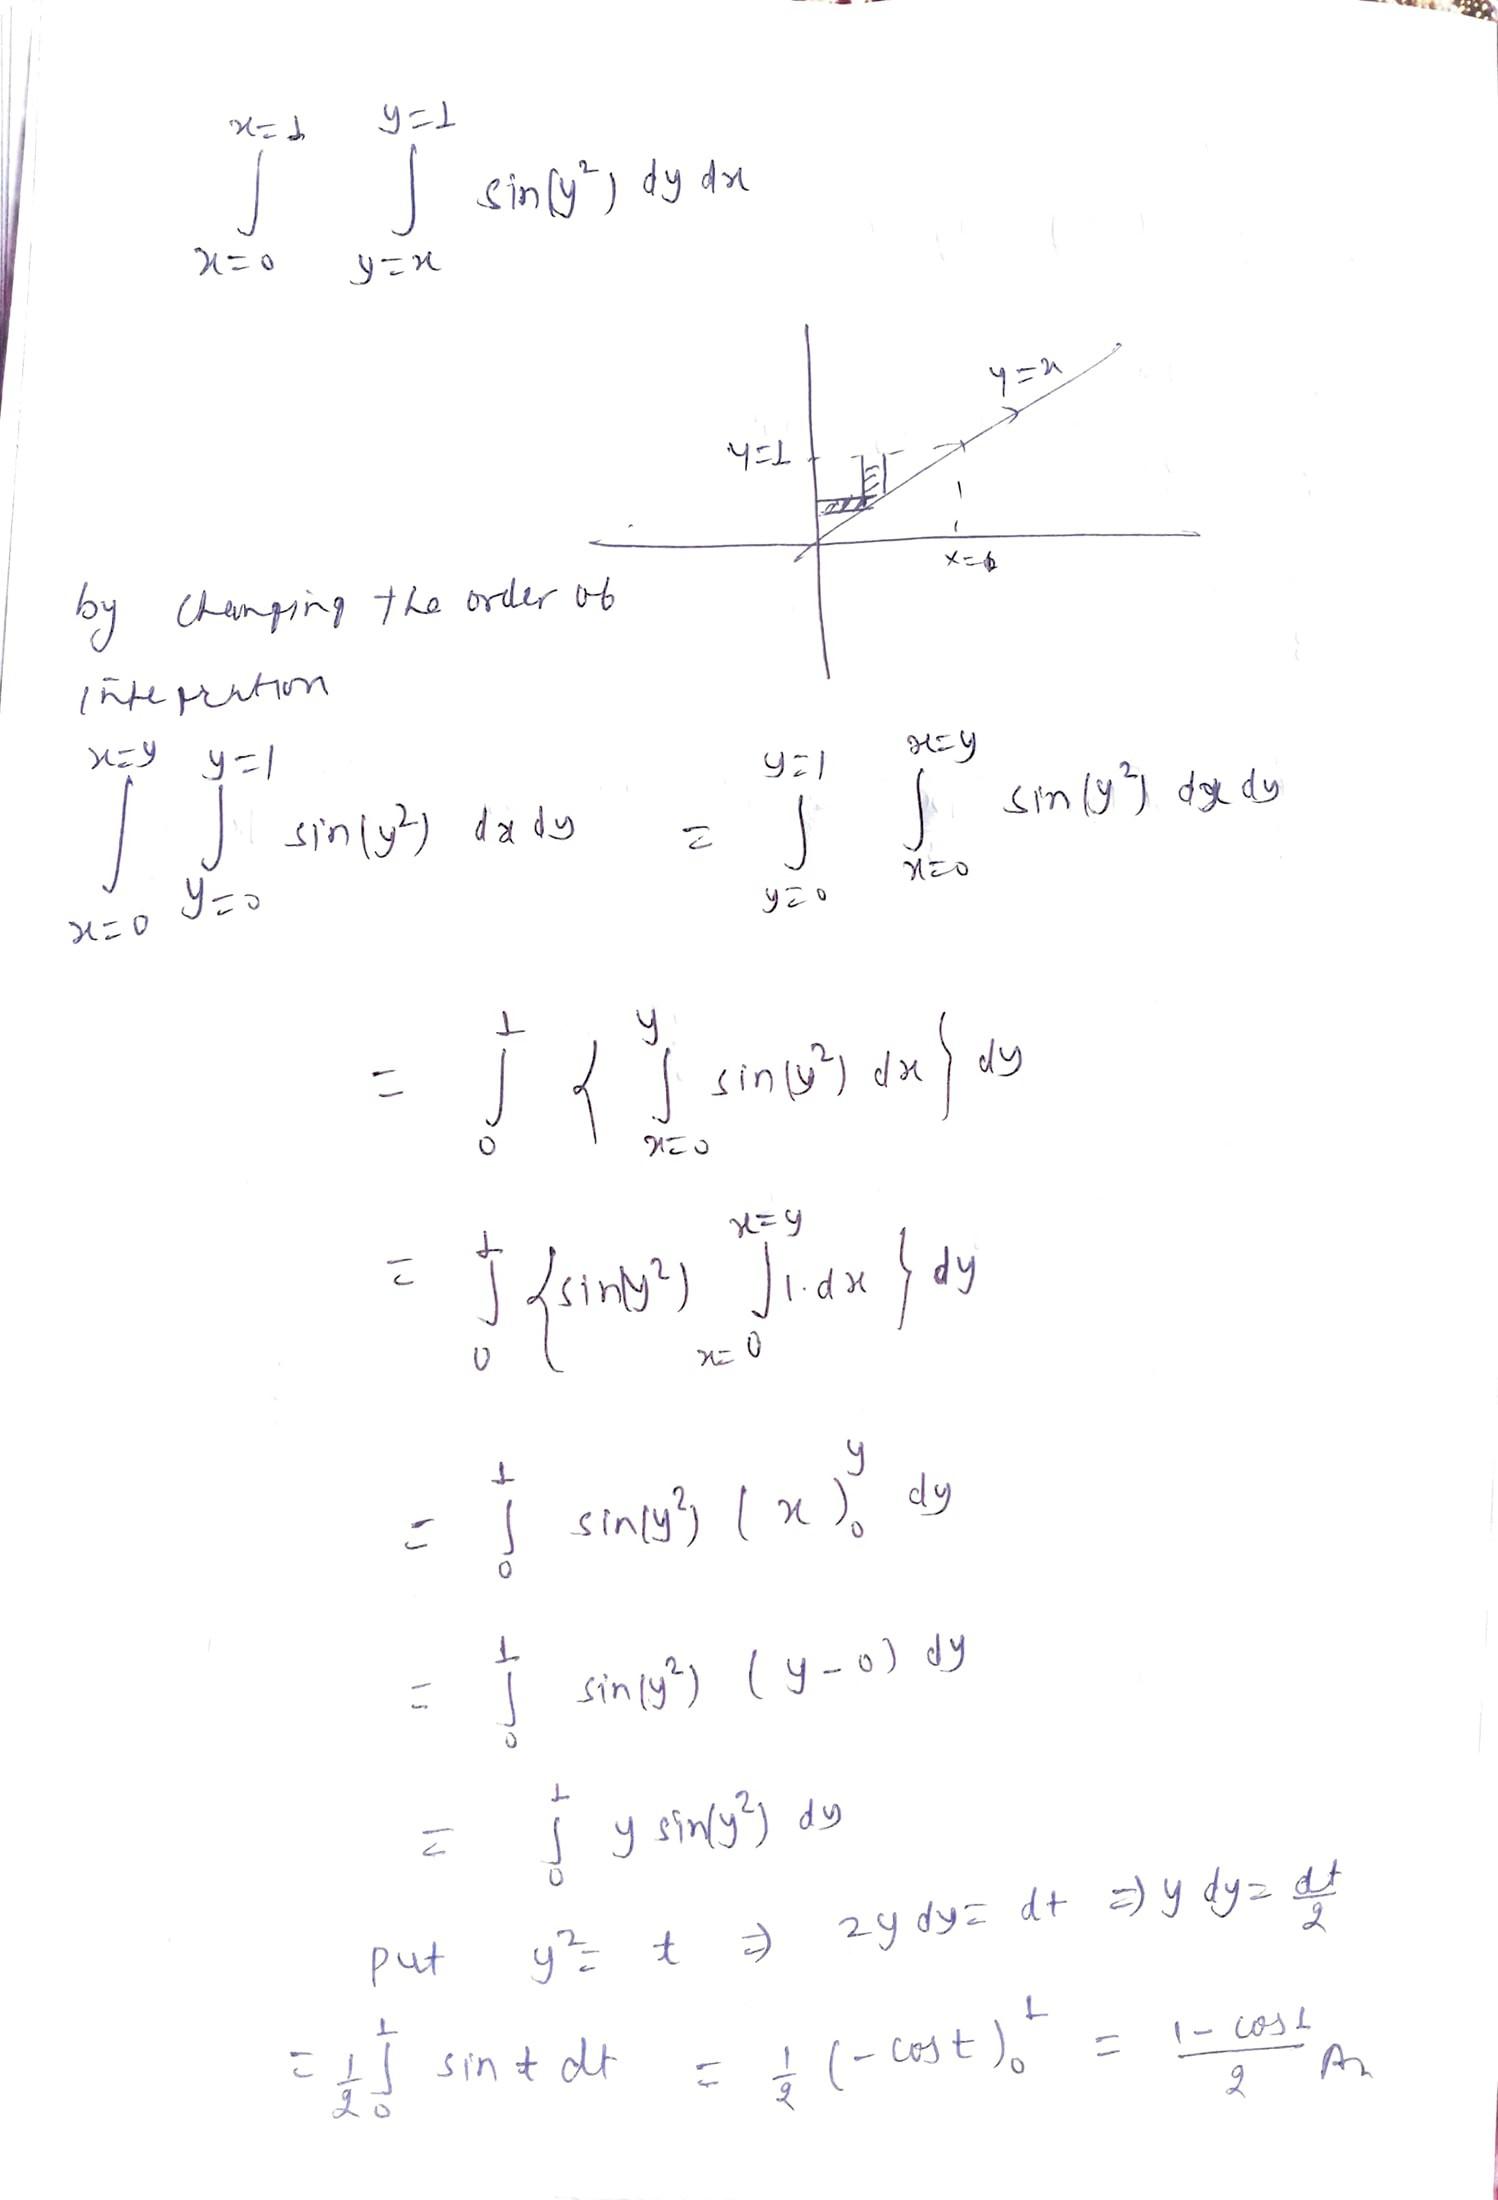 x=1 y=1
∫ ∫ sin(y²) dy dx
x=0 y=x
y=x
y=1
x=1
by changing the order of
integration
x=y y=1 y=1 x=y
∫ ∫ sin(y²) dx dy = ∫ ∫ sin(y²) dx dy
x=0 y=0 y=0 x=0
= ∫₀¹ { ∫_{x=0}^{y} sin(y²) dx } dy
= ∫₀¹ { sin(y²) ∫_{x=0}^{x=y} 1.dx } dy
= ∫₀¹ sin(y²) (x)₀^y dy
= ∫₀¹ sin(y²) (y-0) dy
= ∫₀¹ y sin(y²) dy
put y² = t ⇒ 2y dy = dt ⇒ y dy = dt/2
= 1/2 ∫₀¹ sin t dt = 1/2 (-cost)₀¹ = (1-cos1)/2 An